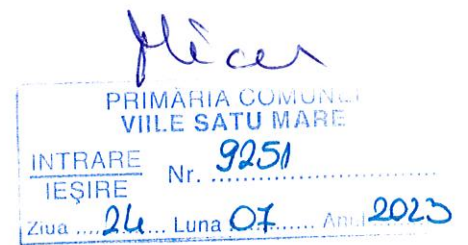 PRIMĂRIA COMUNEI
VIILE SATU MARE
INTRARE
IEŞIRE
Nr. 9251
Ziua .... 24 ... Luna 07 ....... Anul 2023